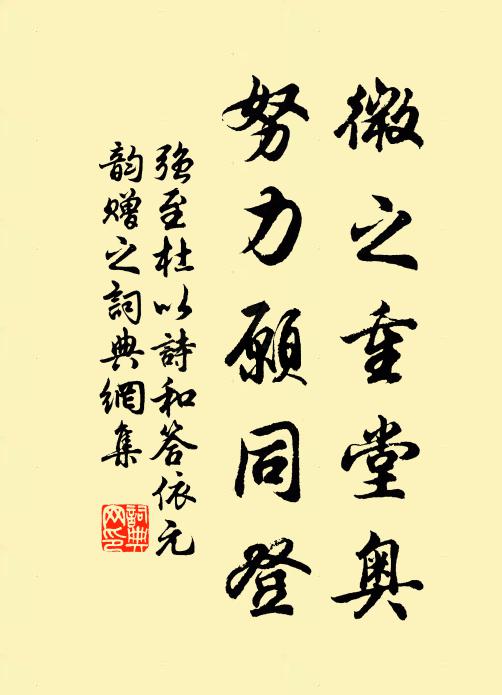 微之重堂奥
努力願同登
强至杜以詩和答依元
韵贈之詞典網集
詞典网印